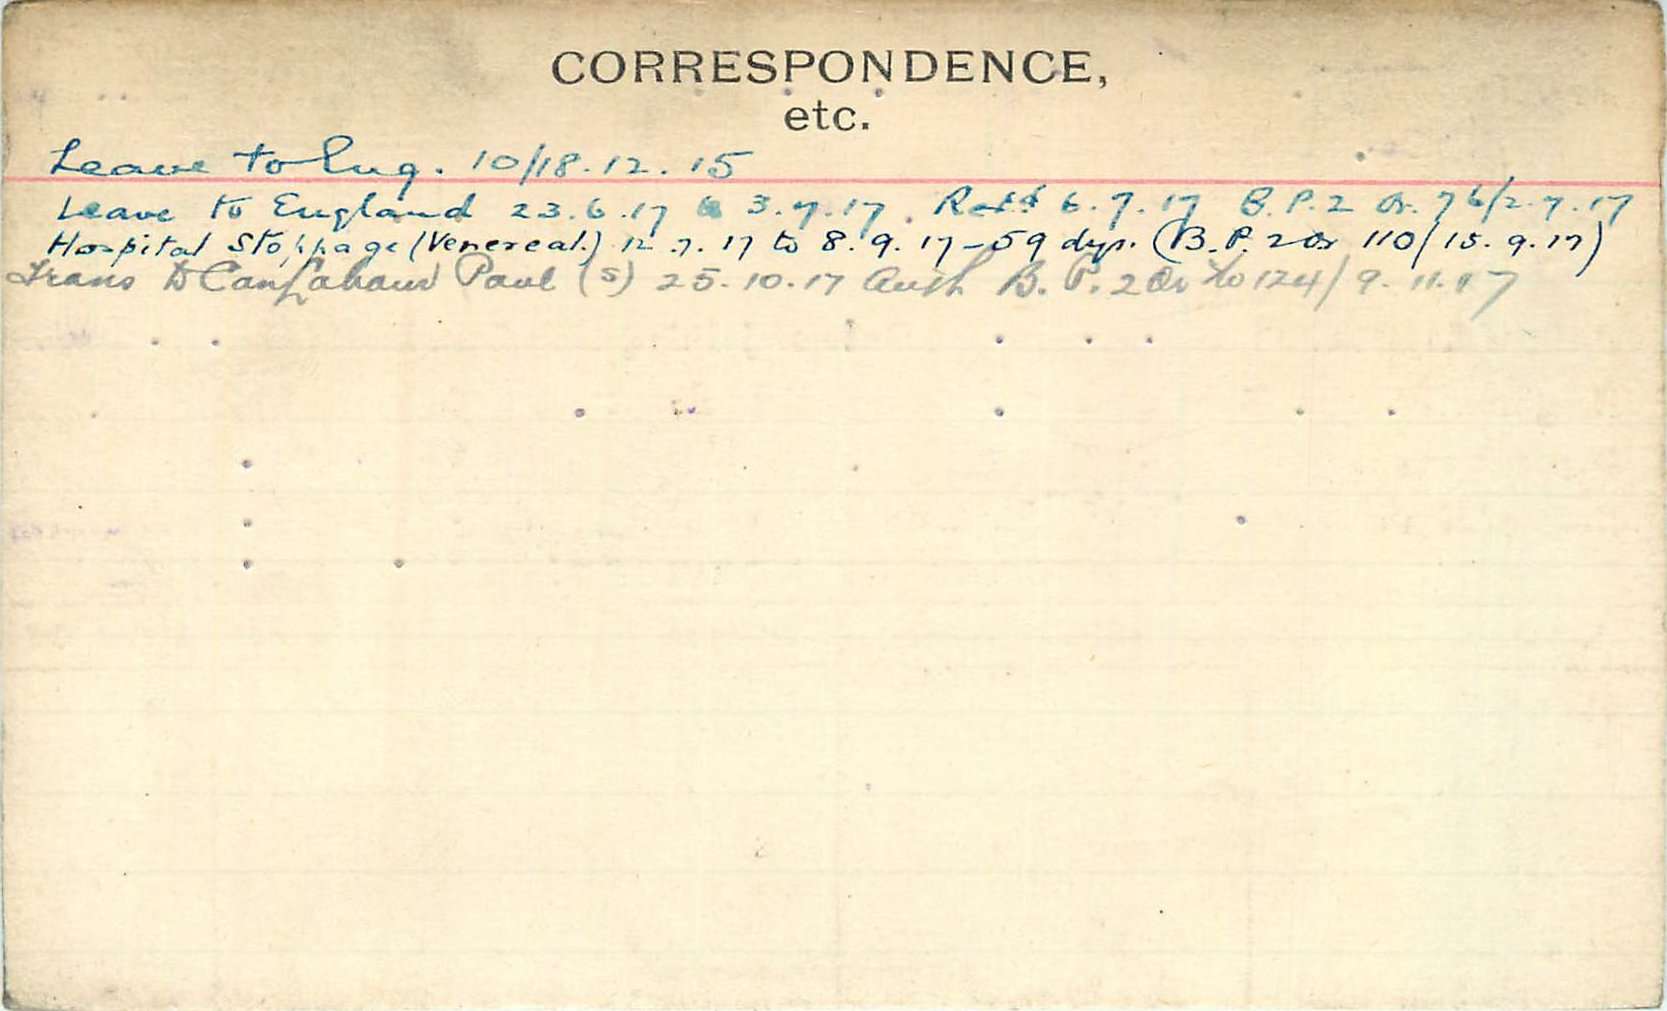 CORRESPONDENCE,
etc.
Leave to Eng. 10/18.12.15
Leave to England 23.6.17 to 3.7.17. Retd 6.7.17 B.P.2 Or. 76/2.7.17
Hospital Stoppage (Venereal.) 12.7.17 to 8.9.17 - 59 dys. (B.P. 2 Or 110/15.9.17)
Trans to Can Labour Pool (s) 25.10.17 Auth B.P. 2 Or No 124/9.11.17